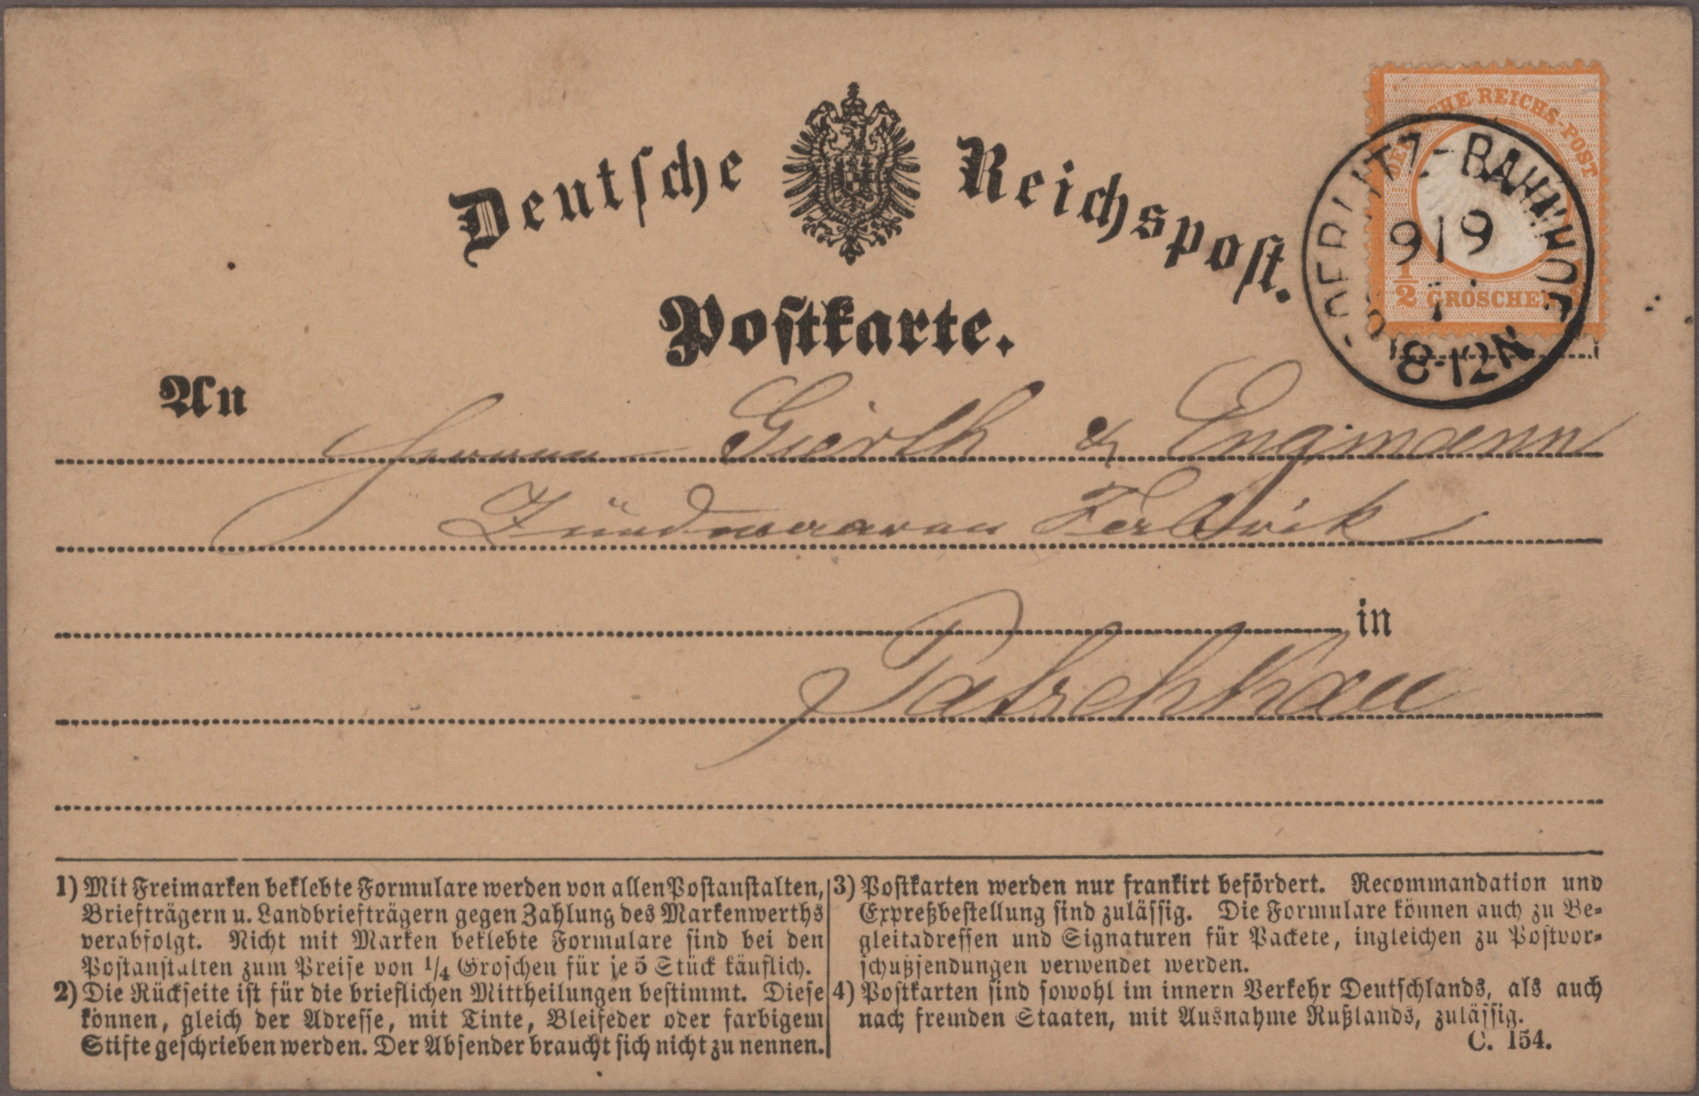 Deutsche Reichspost.
Postkarte.
DEUTSCHE REICHS-POST
1/2 GROSCHEN
GOERLITZ-BAHNHOF
9/9
8-12N
An
Herren Gierth & Engmann
Zündwaaren Fabrik
in
Patschkau
1) Mit Freimarken beklebte Formulare werden von allen Postanstalten,
Briefträgern u. Landbriefträgern gegen Zahlung des Markenwerths
verabfolgt. Nicht mit Marken beklebte Formulare sind bei den
Postanstalten zum Preise von 1/4 Groschen für je 5 Stück käuflich.
2) Die Rückseite ist für die brieflichen Mittheilungen bestimmt. Diese
können, gleich der Adresse, mit Tinte, Bleifeder oder farbigem
Stifte geschrieben werden. Der Absender braucht sich nicht zu nennen.
3) Postkarten werden nur frankirt befördert. Recommandation und
Expreßbestellung sind zulässig. Die Formulare können auch zu Be-
gleitadressen und Signaturen für Packete, ingleichen zu Postvor-
schußsendungen verwendet werden.
4) Postkarten sind sowohl im innern Verkehr Deutschlands, als auch
nach fremden Staaten, mit Ausnahme Rußlands, zulässig.
C. 154.